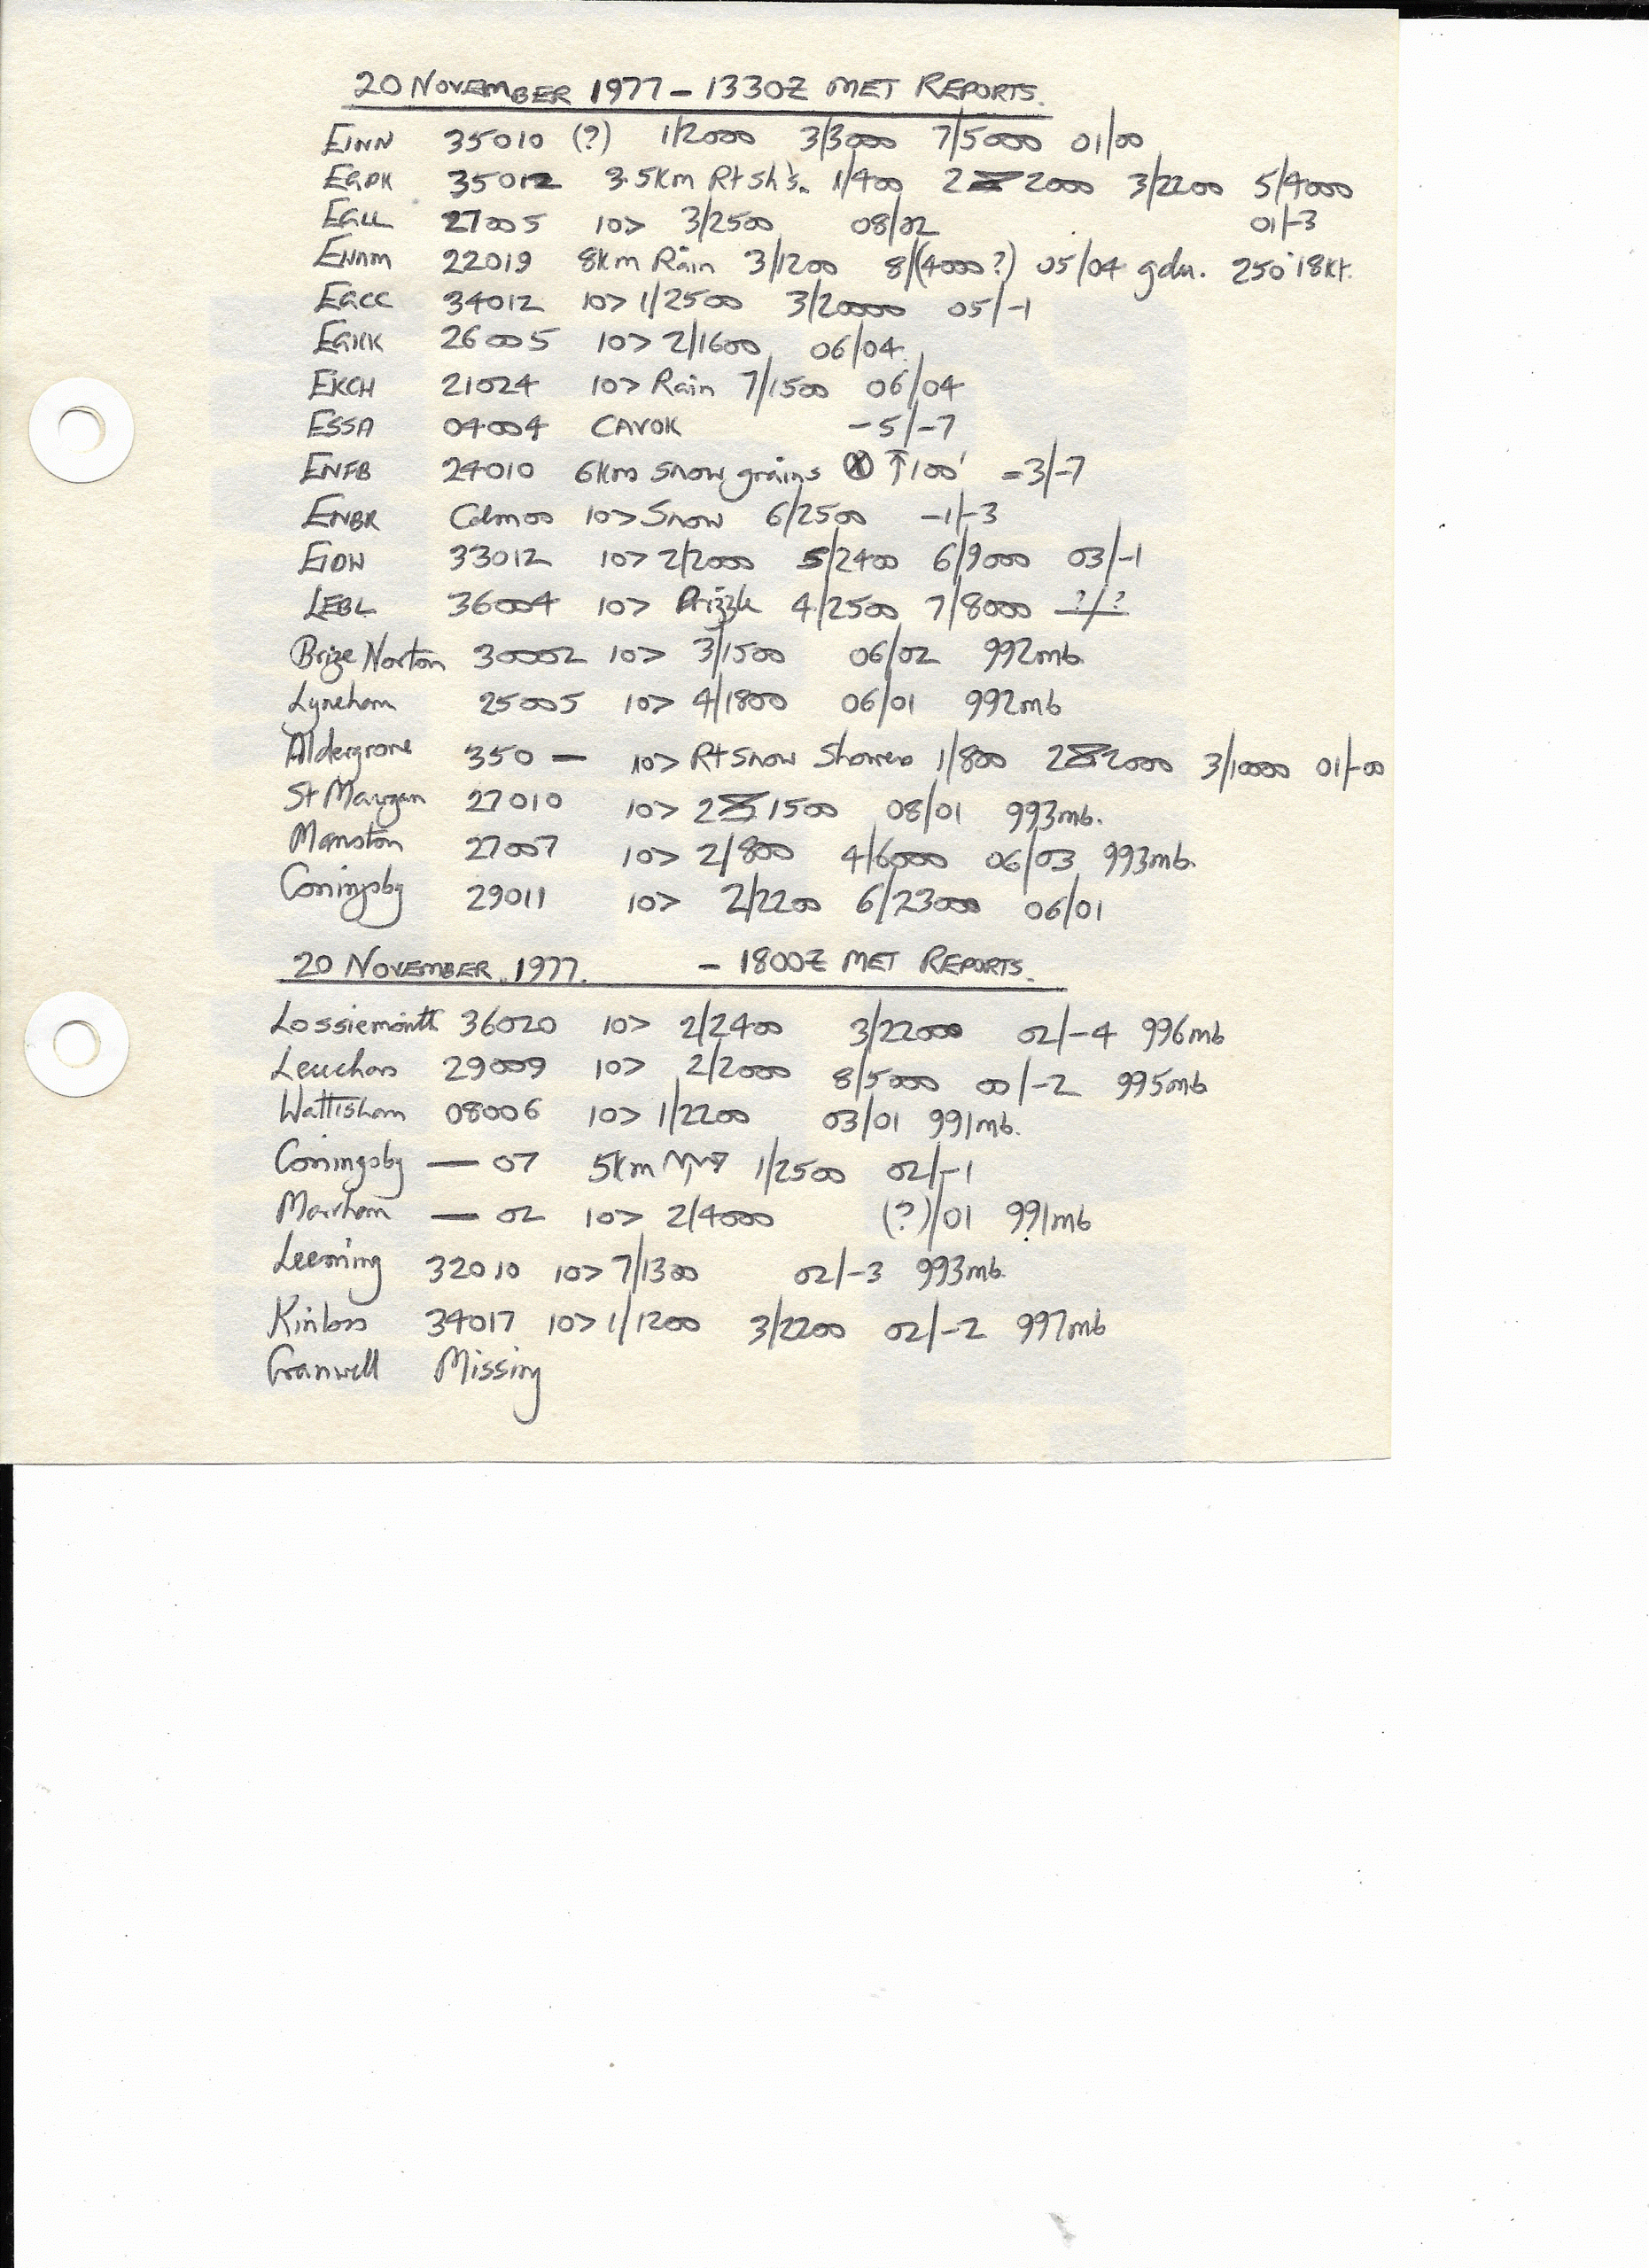 20 NOVEMBER 1977 - 1330Z MET REPORTS.
EINN 35010 (?) 1/2000 3/3000 7/5000 01/00
EGPK 35012 3.5Km R+Sh's. 1/400 2 2000 3/2200 5/4000
EGLL 27005 10> 3/2500 08/02 01/-3
8Km Rain 3/1200 8/(4000?) 05/04 gdn. 250°18Kt. 22019
EGCC 34012 10> 1/2500 3/20000 05/-1
EGKK 26005 10> 2/1600 06/04
EKCH 21024 10> Rain 7/1500 06/04
ESSA 04004 CAVOK -5/-7
ENFB 24010 6Km snow grains ⊗ ↑100' -3/-7
ENBR Calm00 10> Snow 6/2500 -1/-3
EIDW 33012 10> 2/2000 5/2400 6/9000 03/-1
LEBL 36004 10> Drizzle 4/2500 7/8000 ?/?
Brize Norton 30002 10> 3/1500 06/02 992mb
Lyneham 25005 10> 4/1800 06/01 992mb
Aldergrove 350 — 10> R+Snow Showers 1/800 2 2000 3/10000 01/-00
St Mawgan 27010 10> 2 1500 08/01 993mb.
Manston 27007 10> 2/800 4/6000 06/03 993mb.
Coningsby 29011 10> 2/2200 6/23000 06/01
20 NOVEMBER 1977. - 1800Z MET REPORTS.
Lossiemouth 36020 10> 2/2400 3/22000 02/-4 996mb
Leuchars 29009 10> 2/2000 8/5000 00/-2 995mb
Wattisham 08006 10> 1/2200 03/01 991mb.
Coningsby — 07 5Km 1/2500 02/-1
Marham — 02 10> 2/4000 (?)/01 991mb
Leeming 32010 10> 7/1300 02/-3 993mb.
Kinloss 34017 10> 1/1200 3/2200 02/-2 997mb
Cranwell Missing